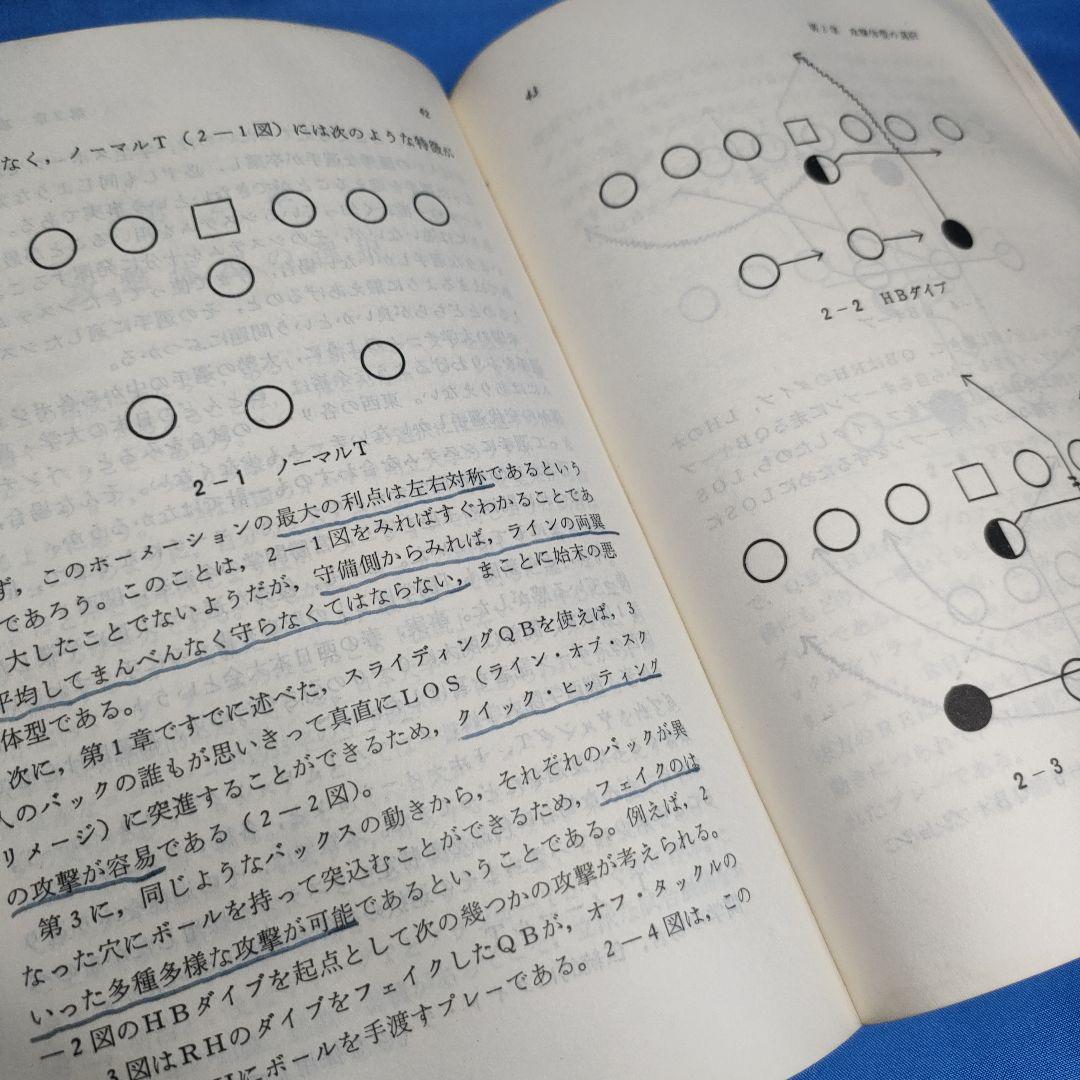 42
なく，ノーマルT（2－1図）には次のような特徴が
2－1　ノーマルT
ず，このホーメーションの最大の利点は左右対称であるという
であろう。このことは，2－1図をみればすぐわかることであ
大したことでないようだが，守備側からみれば，ラインの両翼
平均してまんべんなく守らなくてはならない，まことに始末の悪
体型である。
次に，第1章ですでに述べた，スライディングQBを使えば，3
人のバックの誰もが思いきって真直にLOS（ライン・オブ・スク
リメージ）に突進することができるため，クイック・ヒッティング
の攻撃が容易である（2－2図）。
第3に，同じようなバックスの動きから，それぞれのバックが異
なった穴にボールを持って突込むことができるため，フェイクのは
いった多種多様な攻撃が可能であるということである。例えば，2
－2図のHBダイブを起点として次の幾つかの攻撃が考えられる。
3図はRHのダイブをフェイクしたQBが，オフ・タックルの
Hにボールを手渡すプレーである。2－4図は，この
第2章　攻撃体型の選択
43
2－2　HBダイブ
2－3